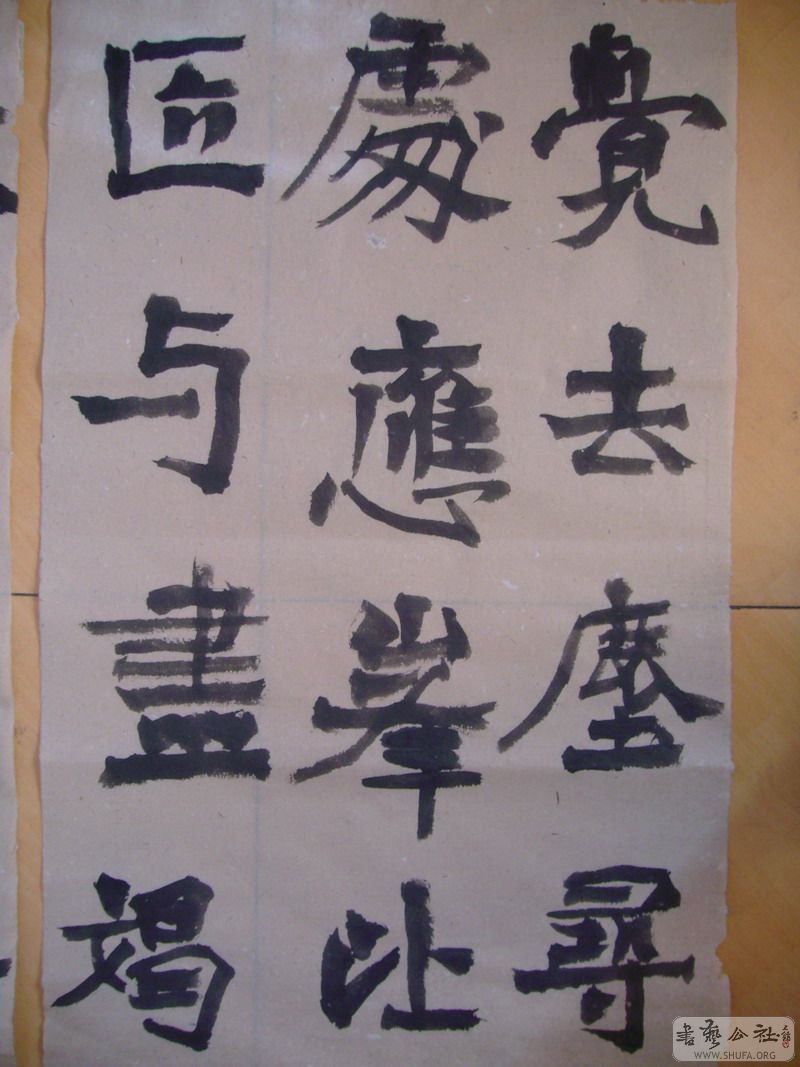 覺去塵尋
處應峯
匠与盡竭
書藝公社
WWW.SHUFA.ORG